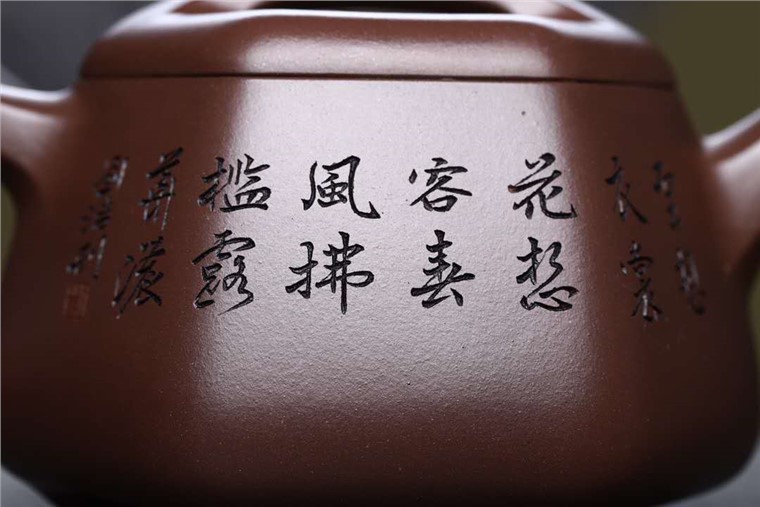 雲想
衣裳
花想
容春
風拂
檻露
華濃